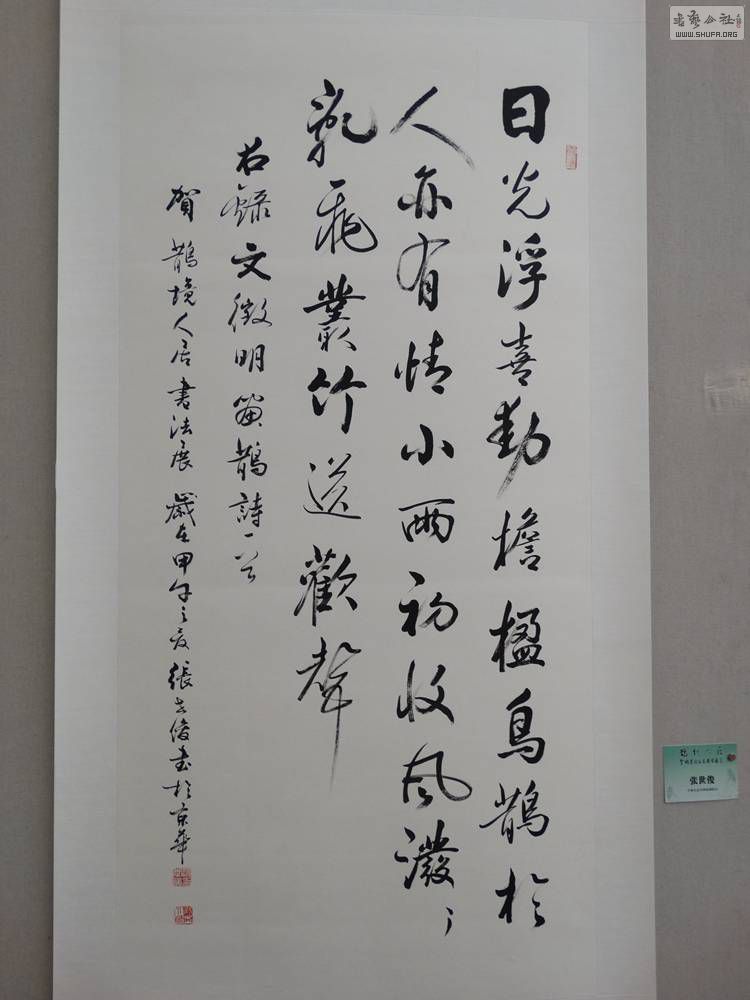 日光浮喜動檐楹鳥鵲於
人亦有情小雨初收風潑〻
亂飛叢竹送歡聲
右錄文徵明畫鵲詩一首
賀鵲境人居書法展歲在甲午之夏張世俊書於京華
张世俊
WWW.SHUFA.ORG